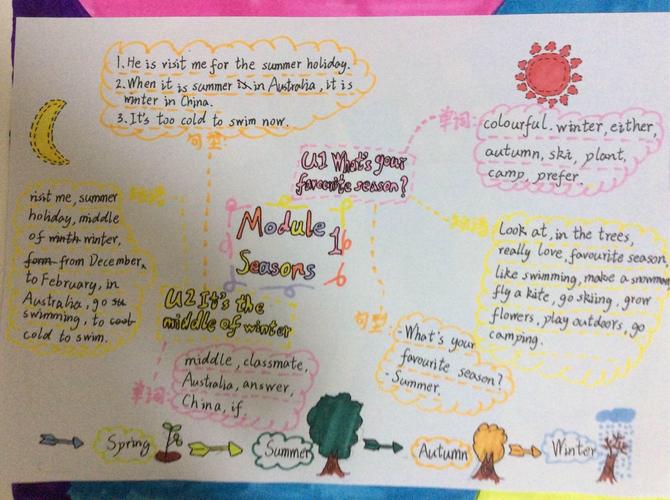 1. He is visit me for the summer holiday.
2. When it is summer in Australia, it is
winter in China.
3. It's too cold to swim now.
句型
U1 What's your
favourite season?
单词:
colourful. winter, either,
autumn, ski, plant,
camp, prefer.
Module 1
Seasons
visit me, summer
holiday, middle
of winter,
from December,
to February, in
Australia, go
swimming, to
cold to swim.
短语
短语
Look at, in the trees,
really love, favourite season,
like swimming, make a snowman
fly a kite, go skiing, grow
flowers, play outdoors, go
camping.
U2 It's the
middle of winter
句型
-What's your
favourite season?
-Summer.
单词:
middle, classmate,
Australia, answer,
China, if.
Spring
Summer
Autumn
Winter